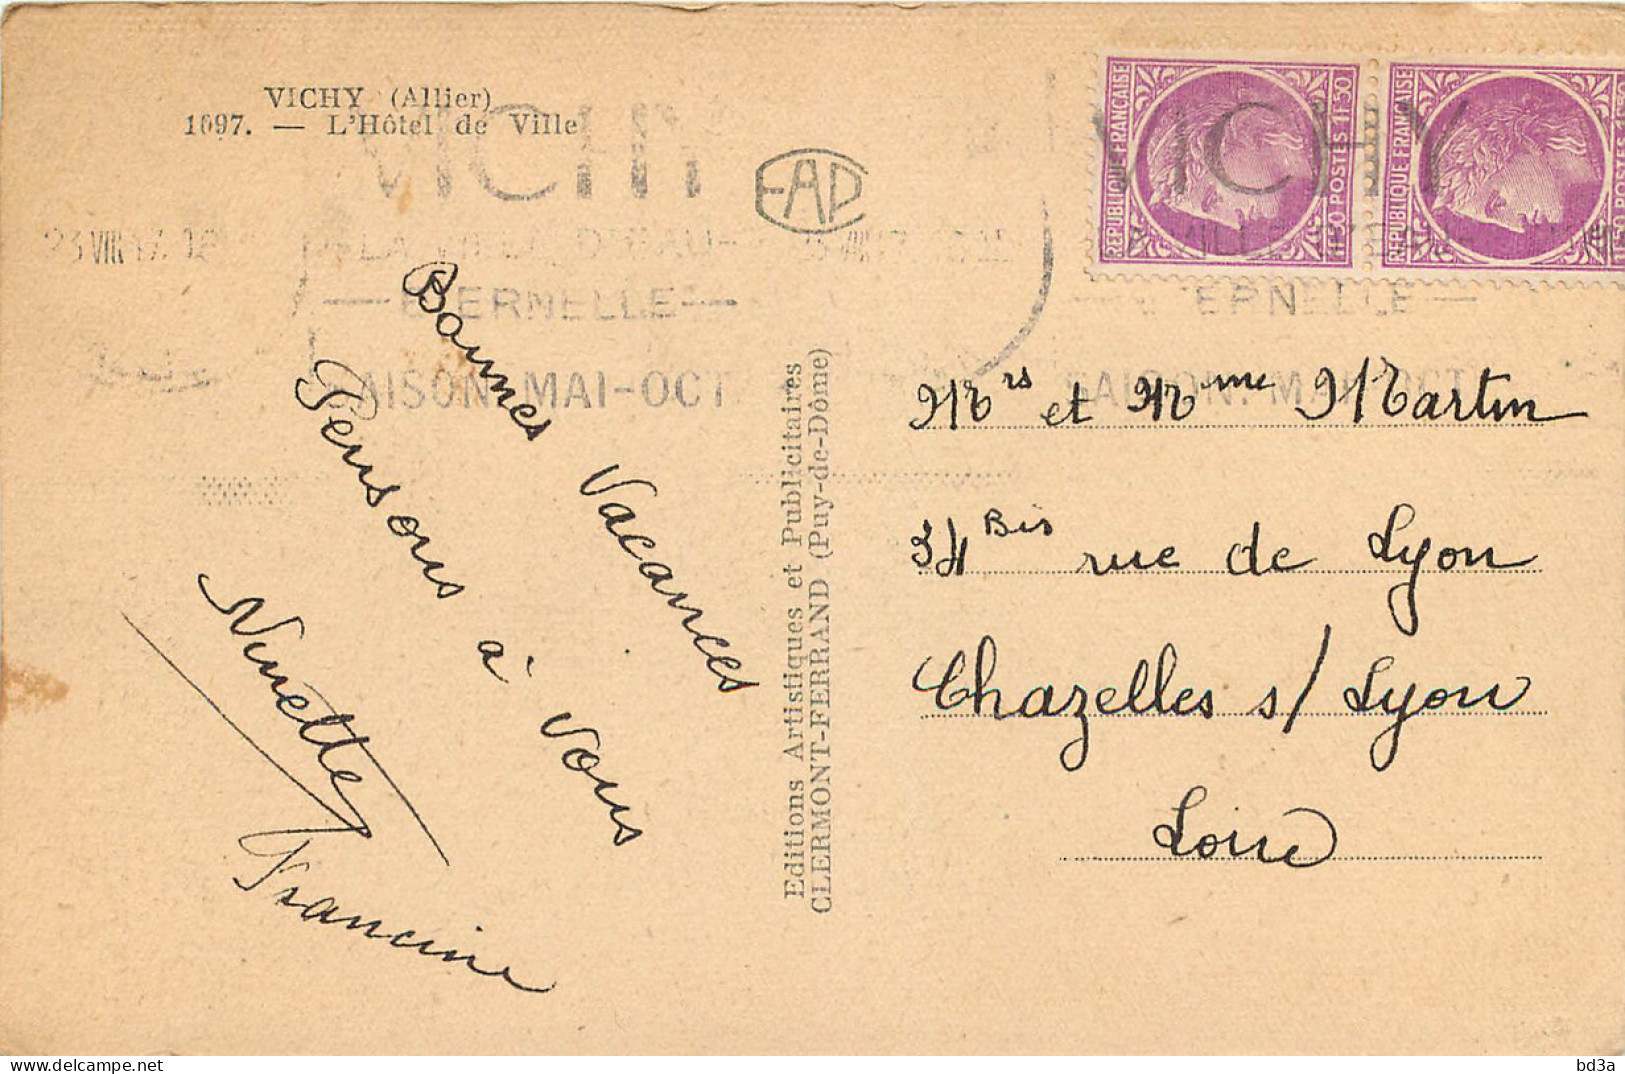 VICHY (Allier)
1097. — L'Hôtel de Ville
VICHY
LA VILLE D'EAU
ETERNELLE
SAISON. MAI-OCT.
EAPC
Bonnes Vacances
Pensons à vous
Ninette
Francine
Editions Artistiques et Publicitaires
CLERMONT-FERRAND (Puy-de-Dôme)
REPUBLIQUE FRANÇAISE
1F50 POSTES 1F50
REPUBLIQUE FRANÇAISE
1F50 POSTES 1F50
VICHY
ERNELLE
SAISON. MAI-OCT.
Mrs et Mme Martin
34 Bis rue de Lyon
Chazelles s/ Lyon
Loire
bd3a